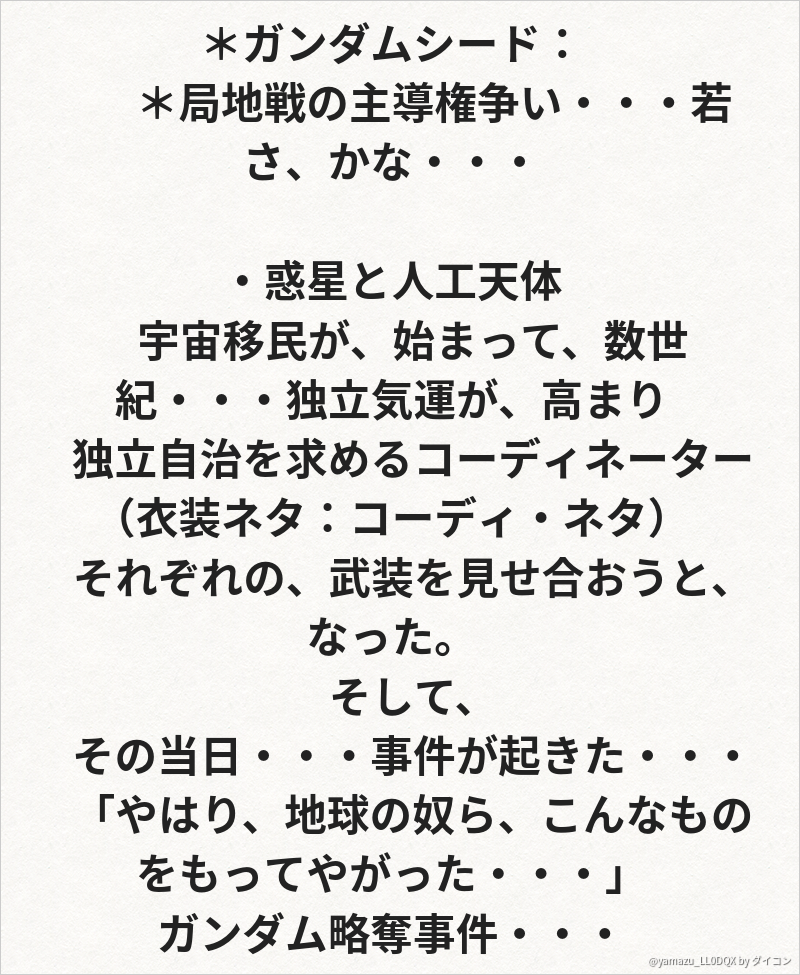 ＊ガンダムシード：
＊局地戦の主導権争い・・・若
さ、かな・・・
・惑星と人工天体
宇宙移民が、始まって、数世
紀・・・独立気運が、高まり
独立自治を求めるコーディネーター
（衣装ネタ：コーディ・ネタ）
それぞれの、武装を見せ合おうと、
なった。
そして、
その当日・・・事件が起きた・・・
「やはり、地球の奴ら、こんなもの
をもってやがった・・・」
ガンダム略奪事件・・・
@yamazu_LL0DQX by ダイコン